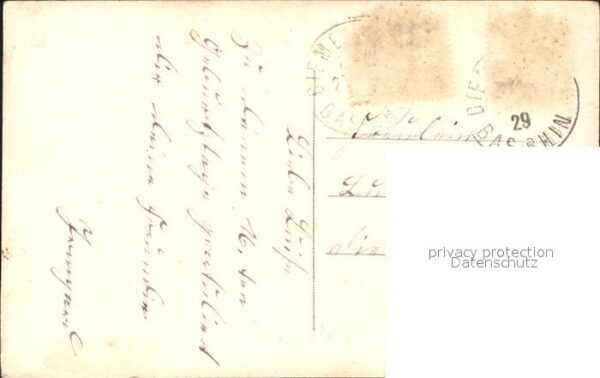 Liebe Luise
Zu deinem 16. ten
Geburtstage gratuliert
dir deine Freundin
Irmgard
Fräulein
DIE
BAS
DIE
29
BAS RHIN
privacy protection
Datenschutz